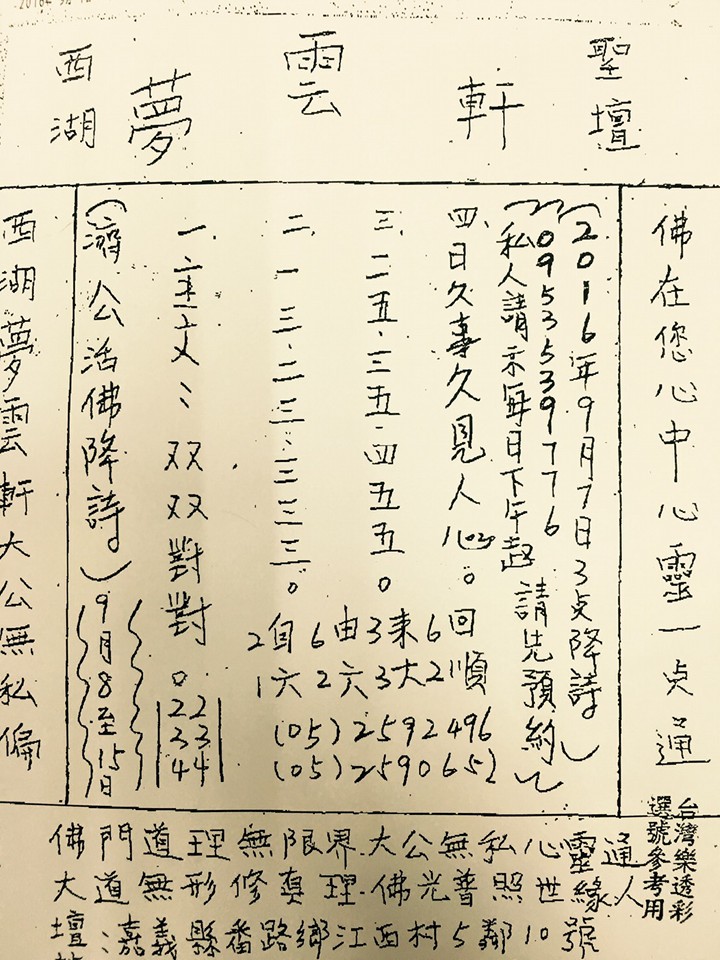 西湖夢雲軒聖壇
西湖夢雲軒大公無私偏
(濟公活佛降詩)9月8至15日
一.双双對對。
22
33
44
二.一三.二三.三三三。
三.二五.三五.四五五。
四.日久事久見人心。
2自6由3來6回
1六2六3大2順
(05)2592496
(05)2590652
私人請示每日下午起 請先預約
0953539776
(2016年9月7日3点降詩)
佛在您心中心靈一点通
台灣樂透彩
選號參考用
佛門道理無限界.大公無私心靈通
大道無形修真理.佛光普照世緣人
壇:嘉義縣番路鄉江西村5鄰10號